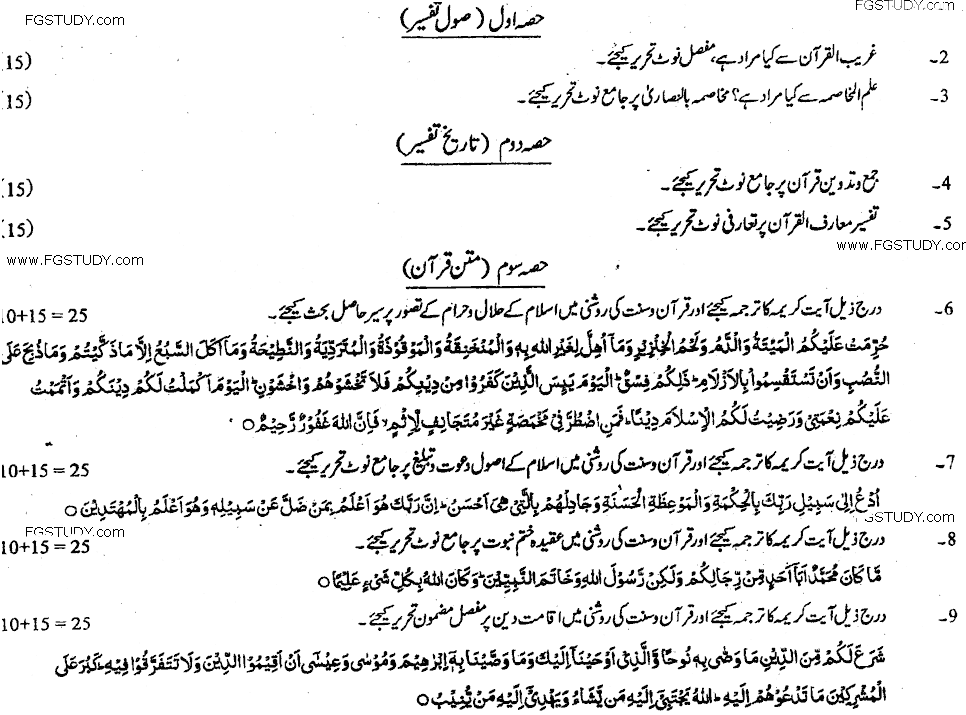 FGSTUDY.com
FGSTUDY.com
حصہ اول (صول تفسیر)
2۔ غریب القرآن سے کیا مراد ہے، مفصل نوٹ تحریر کیجئے۔ (15)
3۔ علم المخاصمہ سے کیا مراد ہے؟ مخاصمہ بالنصاریٰ پر جامع نوٹ تحریر کیجئے۔ (15)
حصہ دوم (تاریخ تفسیر)
4۔ جمع و تدوین قرآن پر جامع نوٹ تحریر کیجئے۔ (15)
5۔ تفسیر معارف القرآن پر تعارفی نوٹ تحریر کیجئے۔ (15)
www.FGSTUDY.com
www.FGSTUDY.com
حصہ سوم (متن قرآن)
6۔ درج ذیل آیت کریمہ کا ترجمہ کیجئے اور قرآن و سنت کی روشنی میں اسلام کے حلال و حرام کے تصور پر سیر حاصل بحث کیجئے۔ 10+15 = 25
حُرِّمَتْ عَلَيْكُمُ الْمَيْتَةُ وَالدَّمُ وَلَحْمُ الْخِنْزِيْرِ وَمَآ اُهِلَّ لِغَيْرِ اللهِ بِهٖ وَالْمُنْخَنِقَةُ وَالْمَوْقُوْذَةُ وَالْمُتَرَدِّيَةُ وَالنَّطِيْحَةُ وَمَآ اَكَلَ السَّبُعُ اِلَّا مَا ذَكَّيْتُمْ وَمَا ذُبِحَ عَلَى
النُّصُبِ وَاَنْ تَسْتَقْسِمُوْا بِالْاَزْلَامِ ذٰلِكُمْ فِسْقٌ اَلْيَوْمَ يَئِسَ الَّذِيْنَ كَفَرُوْا مِنْ دِيْنِكُمْ فَلَا تَخْشَوْهُمْ وَاخْشَوْنِ اَلْيَوْمَ اَكْمَلْتُ لَكُمْ دِيْنَكُمْ وَاَتْمَمْتُ
عَلَيْكُمْ نِعْمَتِيْ وَرَضِيْتُ لَكُمُ الْاِسْلَامَ دِيْنًا فَمَنِ اضْطُرَّ فِيْ مَخْمَصَةٍ غَيْرَ مُتَجَانِفٍ لِّاِثْمٍ فَاِنَّ اللهَ غَفُوْرٌ رَّحِيْمٌ ○
7۔ درج ذیل آیت کریمہ کا ترجمہ کیجئے اور قرآن و سنت کی روشنی میں اسلام کے اصول دعوت و تبلیغ پر جامع نوٹ تحریر کیجئے۔ 10+15 = 25
اُدْعُ اِلٰى سَبِيْلِ رَبِّكَ بِالْحِكْمَةِ وَالْمَوْعِظَةِ الْحَسَنَةِ وَجَادِلْهُمْ بِالَّتِيْ هِيَ اَحْسَنُ اِنَّ رَبَّكَ هُوَ اَعْلَمُ بِمَنْ ضَلَّ عَنْ سَبِيْلِهٖ وَهُوَ اَعْلَمُ بِالْمُهْتَدِيْنَ ○
FGSTUDY.com
FGSTUDY.com
8۔ درج ذیل آیت کریمہ کا ترجمہ کیجئے اور قرآن و سنت کی روشنی میں عقیدہ ختم نبوت پر جامع نوٹ تحریر کیجئے۔ 10+15 = 25
مَا كَانَ مُحَمَّدٌ اَبَآ اَحَدٍ مِّنْ رِّجَالِكُمْ وَلٰكِنْ رَّسُوْلَ اللهِ وَخَاتَمَ النَّبِيّٖنَ وَكَانَ اللهُ بِكُلِّ شَيْءٍ عَلِيْمًا ○
9۔ درج ذیل آیت کریمہ کا ترجمہ کیجئے اور قرآن و سنت کی روشنی میں اقامت دین پر مفصل مضمون تحریر کیجئے۔ 10+15 = 25
شَرَعَ لَكُمْ مِّنَ الدِّيْنِ مَا وَصّٰى بِهٖ نُوْحًا وَّالَّذِيْٓ اَوْحَيْنَآ اِلَيْكَ وَمَا وَصَّيْنَا بِهٖٓ اِبْرٰهِيْمَ وَمُوْسٰى وَعِيْسٰٓى اَنْ اَقِيْمُوا الدِّيْنَ وَلَا تَتَفَرَّقُوْا فِيْهِ كَبُرَ عَلَى
الْمُشْرِكِيْنَ مَا تَدْعُوْهُمْ اِلَيْهِ اَللهُ يَجْتَبِيْٓ اِلَيْهِ مَنْ يَّشَآءُ وَيَهْدِيْٓ اِلَيْهِ مَنْ يُّنِيْبُ ○